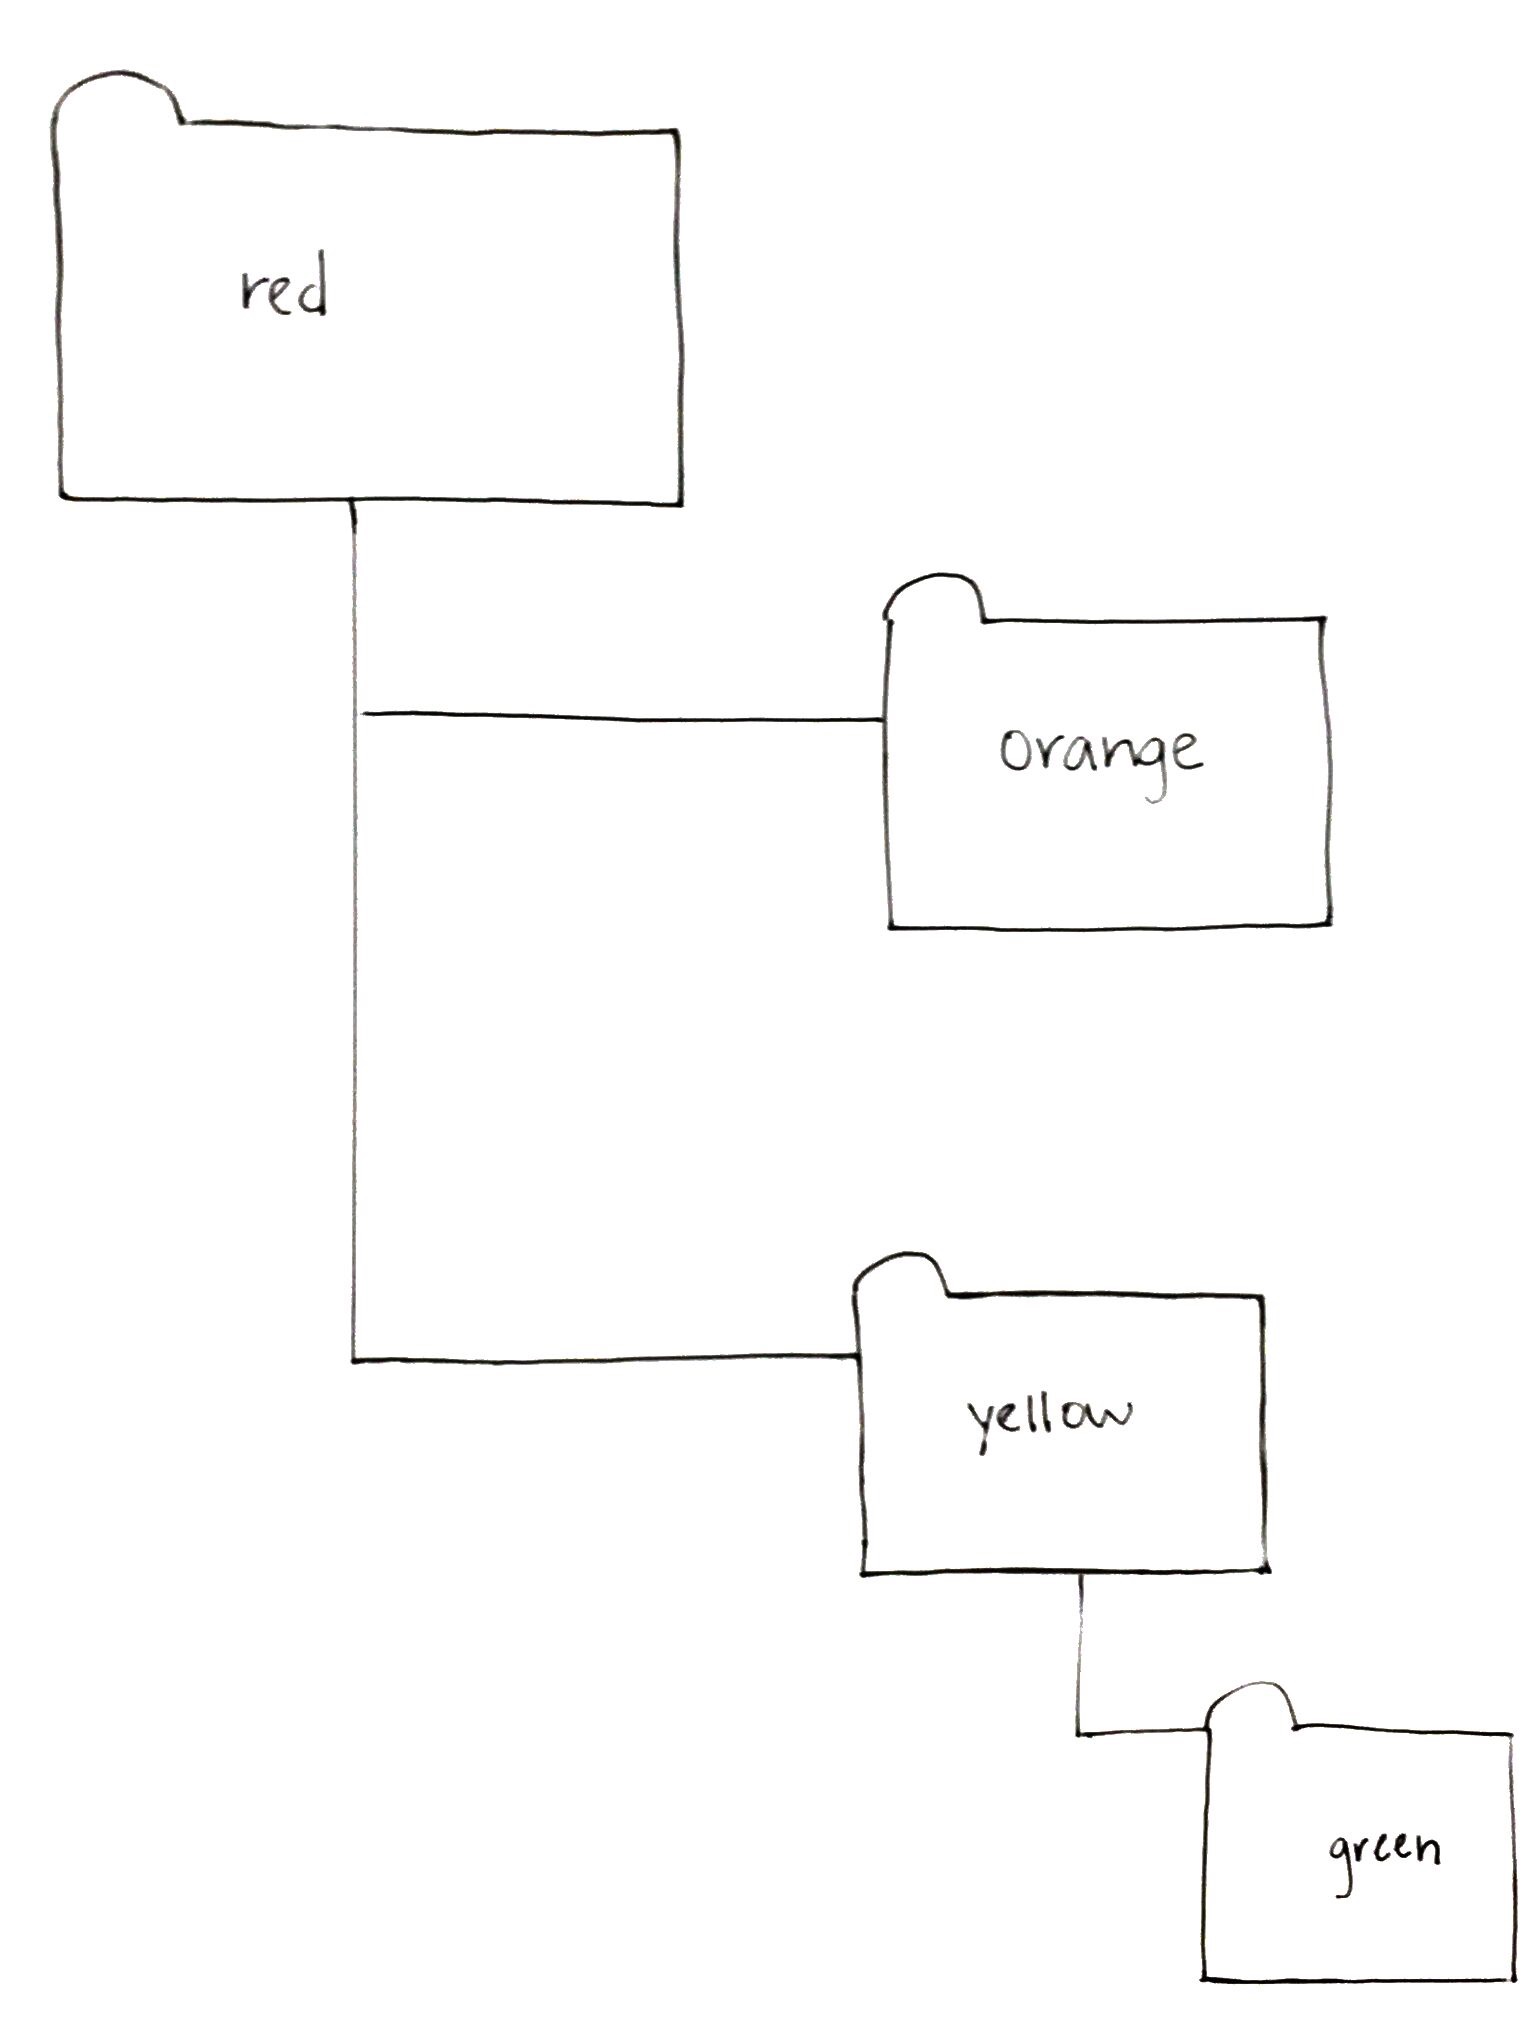 red
orange
yellow
green